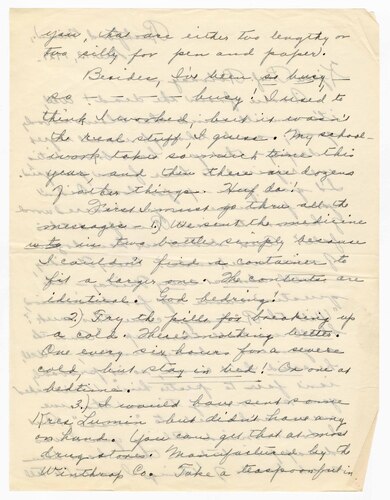 you, that are either too lengthy or
too silly for pen and paper).
Besides, I've been so busy,
so — busy! I used to
think I worked, but it wasn't
the real stuff, I guess. My school-
work takes so much time this
year, and then there are dozens
of other things. Huf da!
First I must go thru all the
messages - 1) We sent the medicine
in two bottles simply because
I couldn't find a container to
fit a larger one. The contents are
identical. God bedring!
2) Try the pills for breaking up
a cold. There's nothing better.
One every six hours for a severe
cold, but stay in bed! Or one at
bedtime.
3) I would have sent some
Lumin but didn't have any
on hand. You can get that at most
drug stores. Manufactured by the
Winthrop Co. Take a teaspoonful in